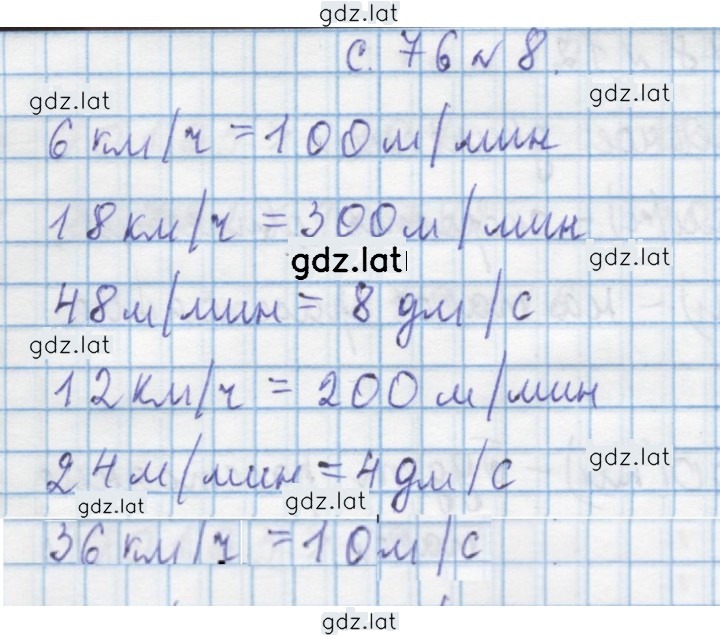 gdz.lat
с. 76 № 8.
gdz.lat gdz.lat
6 км/ч = 100 м/мин
18 км/ч = 300 м/мин
gdz.lat gdz.lat
48 м/мин = 8 дм/с
gdz.lat
12 км/ч = 200 м/мин
gdz.lat
24 м/мин = 4 дм/с
gdz.lat gdz.lat
36 км/ч = 10 м/с
gdz.lat